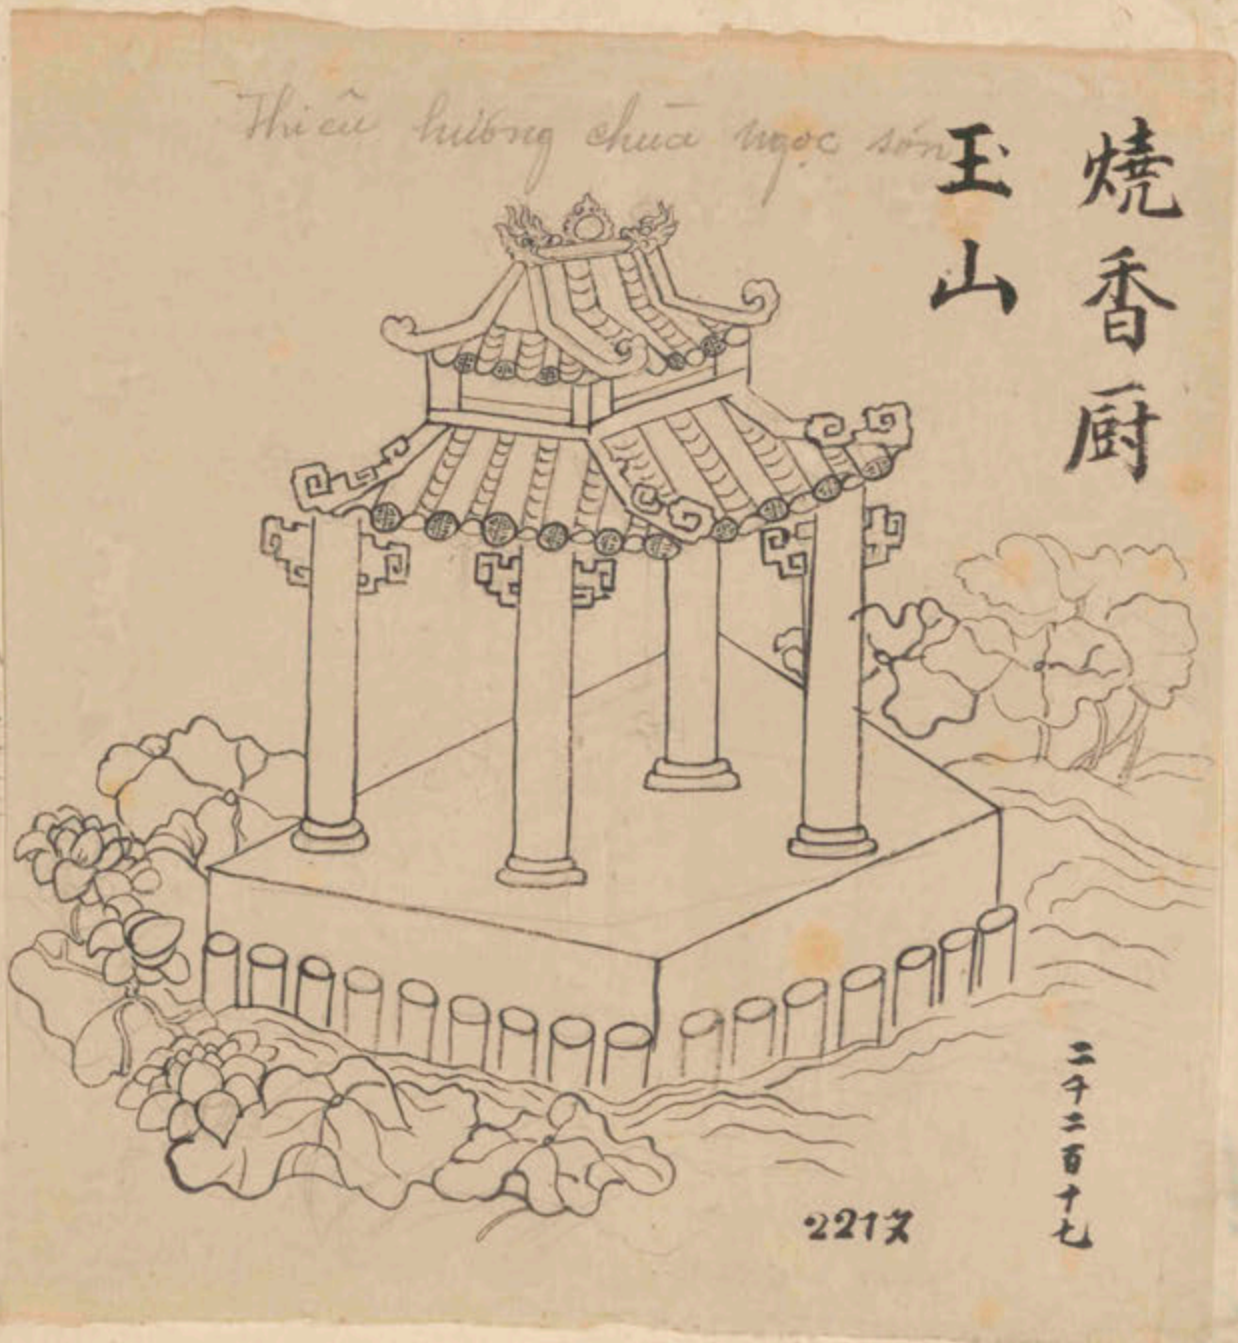 Thiêu hương chùa ngọc sơn
燒香厨
玉山
二千二百十七
2217